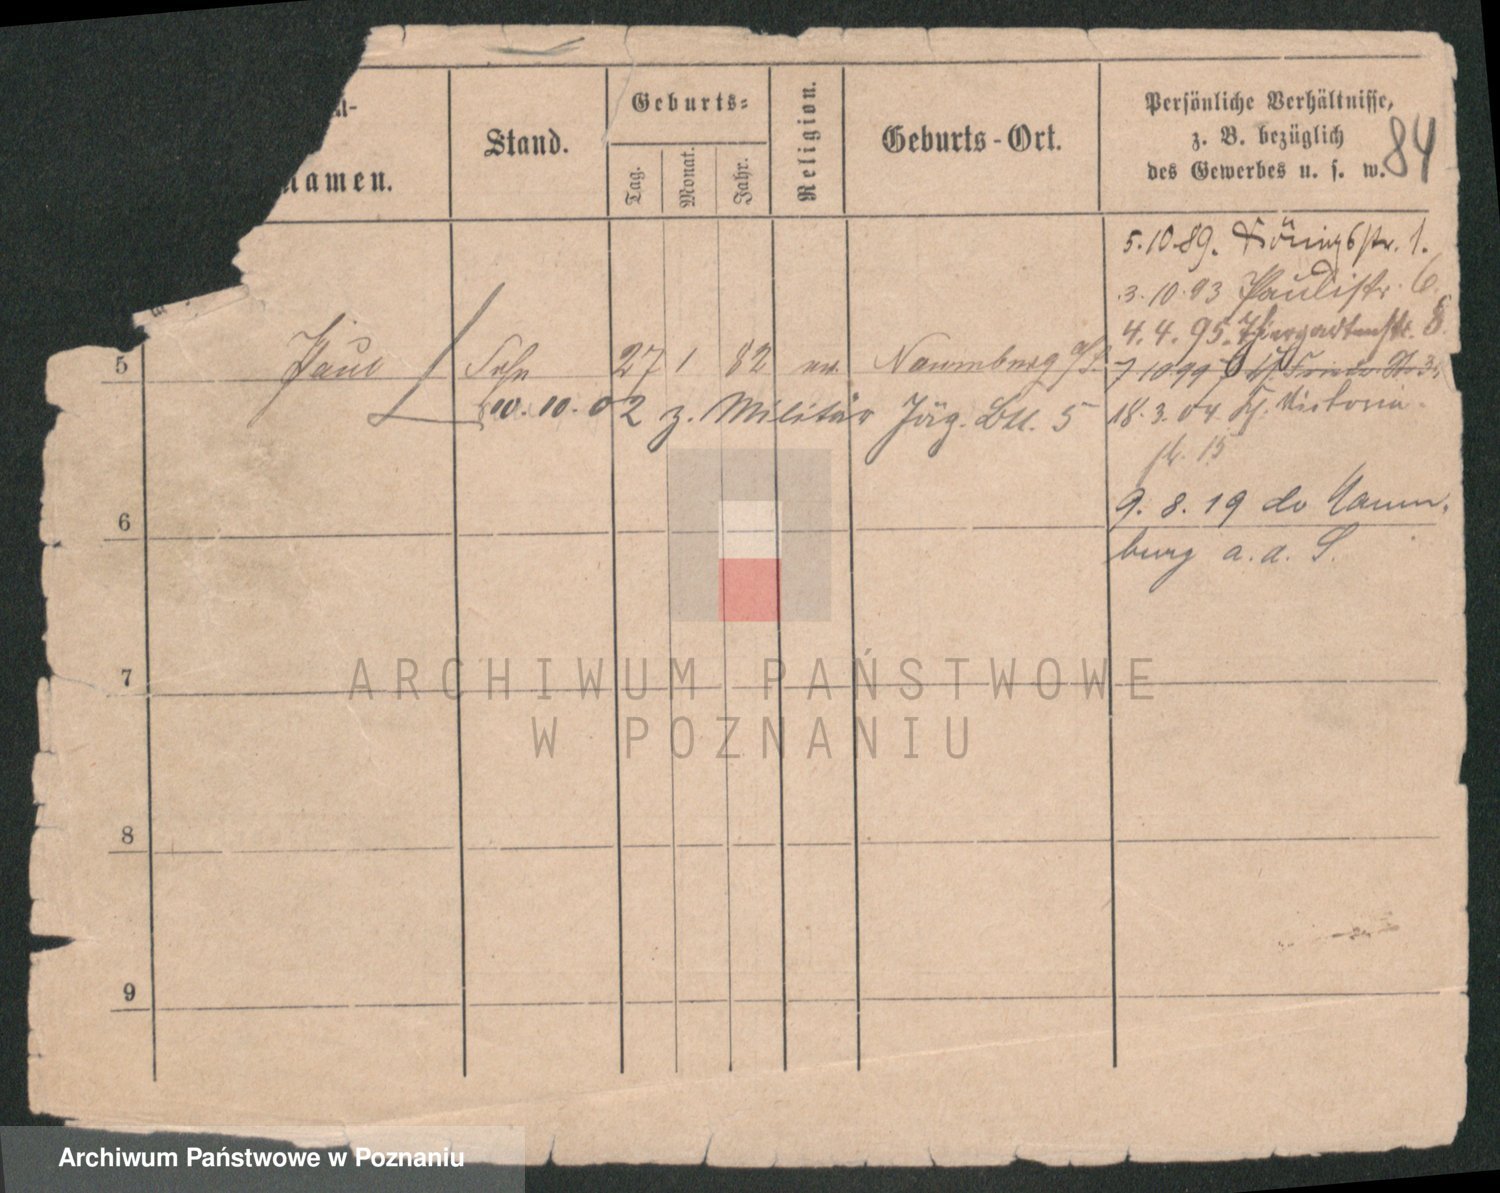 namen.
Stand.
Geburts=
Tag.
Monat.
Jahr.
Religion.
Geburts-Ort.
Persönliche Verhältnisse,
z. B. bezüglich
des Gewerbes u. s. w.
84
5.10.89. Königsstr. 1.
3.10.93 Paulistr. 6.
4.4.95. Thiergartenstr. 8.
5 Paul Sohn 27 1 82 ev. Naumburg a/S.
7 10 99
10.10.02 z. Militär Jäg. Btl. 5
18.3.04 Victoria-
str. 15
6
9.8.19 Naum-
burg a. d. S.
7
8
9
ARCHIWUM PAŃSTWOWE
W POZNANIU
Archiwum Państwowe w Poznaniu